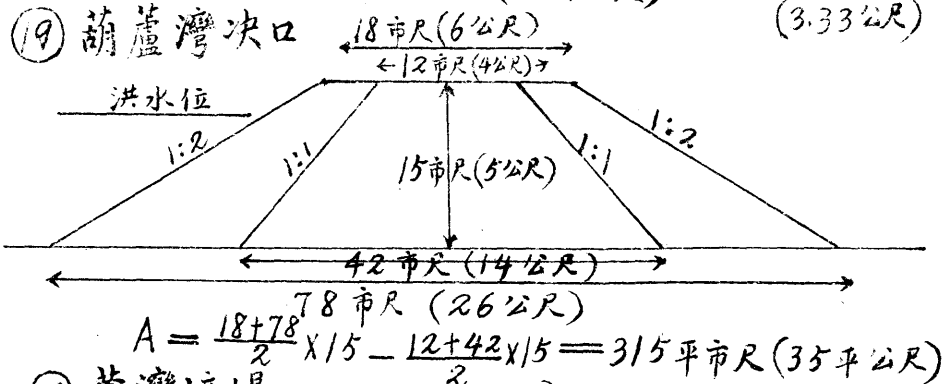 (3.33公尺)
⑲ 葫蘆灣决口
18市尺(6公尺)
12市尺(4公尺)
洪水位
1:2
1:1
15市尺(5公尺)
1:1
1:2
42市尺(14公尺)
78市尺(26公尺)
A = \frac{18+78}{2}×15 - \frac{12+42}{2}×15 = 315平市尺(35平公尺)